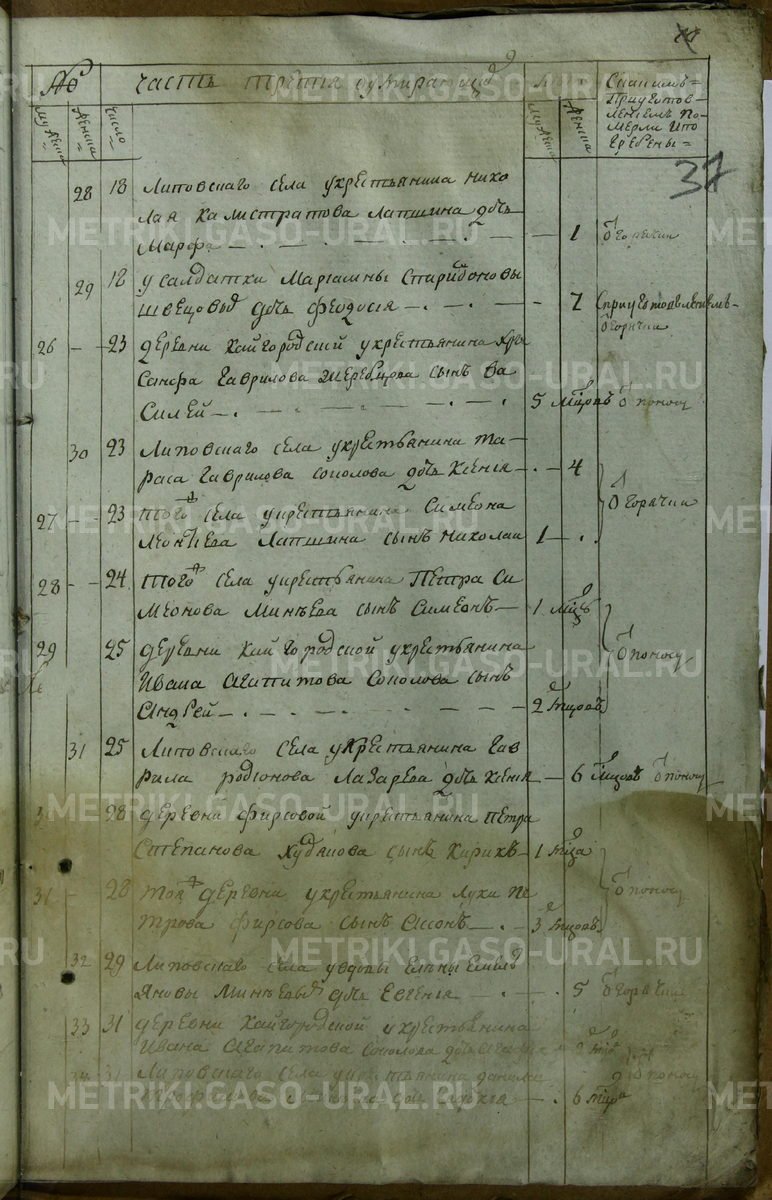 № часть третья оумирающихъ Лѣта Снапилъ=
мужеска женска число мужеска женска =приуготов=
лениемъ по=
мерли и по
гребены=
37
28 18 Липовскаго села укрестьянина нико
лая калистратова лапшина дочь
Марфа — 1 ѿ горячки
29 18 у салдатки Мариамны Спиридоновы
Швецовы дочь Феодосия — 7 Сприуготовлениемъ=
ѿ горячки
26 — 23 деревни кайгородской укрестьянина хри
санфа Гаврилова Жеребцова сынъ ва
силей — 5 мцовъ ѿ поносу
30 23 Липовскаго села укрестьянина та=
раса гаврилова соколова дочь ксения — 4
ѿ горячки
27 — 23 тогожъ села укрестьянина Симеона
леонтьева Лапшина сынъ николаи 1 —
28 — 24 тогожъ села укрестьянина Петра си
меонова Минѣева сынъ Симеонъ — 1 мцъ
ѿ поносу
29 25 деревни кайгородской укрестьянина
Ивана агапитова Соколова сынъ
андрей — 2 мцовъ
31 25 Липовскаго села укрестьянина гав
рила родионова Лазарева дочь ксения — 6 мцовъ ѿ поносу
28 деревни фирсовой укрестьянина петра
Степанова худякова сынъ кирикъ — 1 мца
ѿ поносу
31 — 28 тояжъ деревни укрестьянина луки пе
трова фирсова сынъ ассонъ — 3 мцовъ
32 29 Липовскаго села увдовы Елены Емель
яновы Минѣевыхъ дочь евгенья — 5 ѿ горячки
33 31 деревни кайгородской укрестьянина
Ивана агапитова соколова дочь 2 мца
ѿ поносу
31 Липовскаго села укрестьянина данила
дочь 6 мца
METRIKI.GASO-URAL.RU